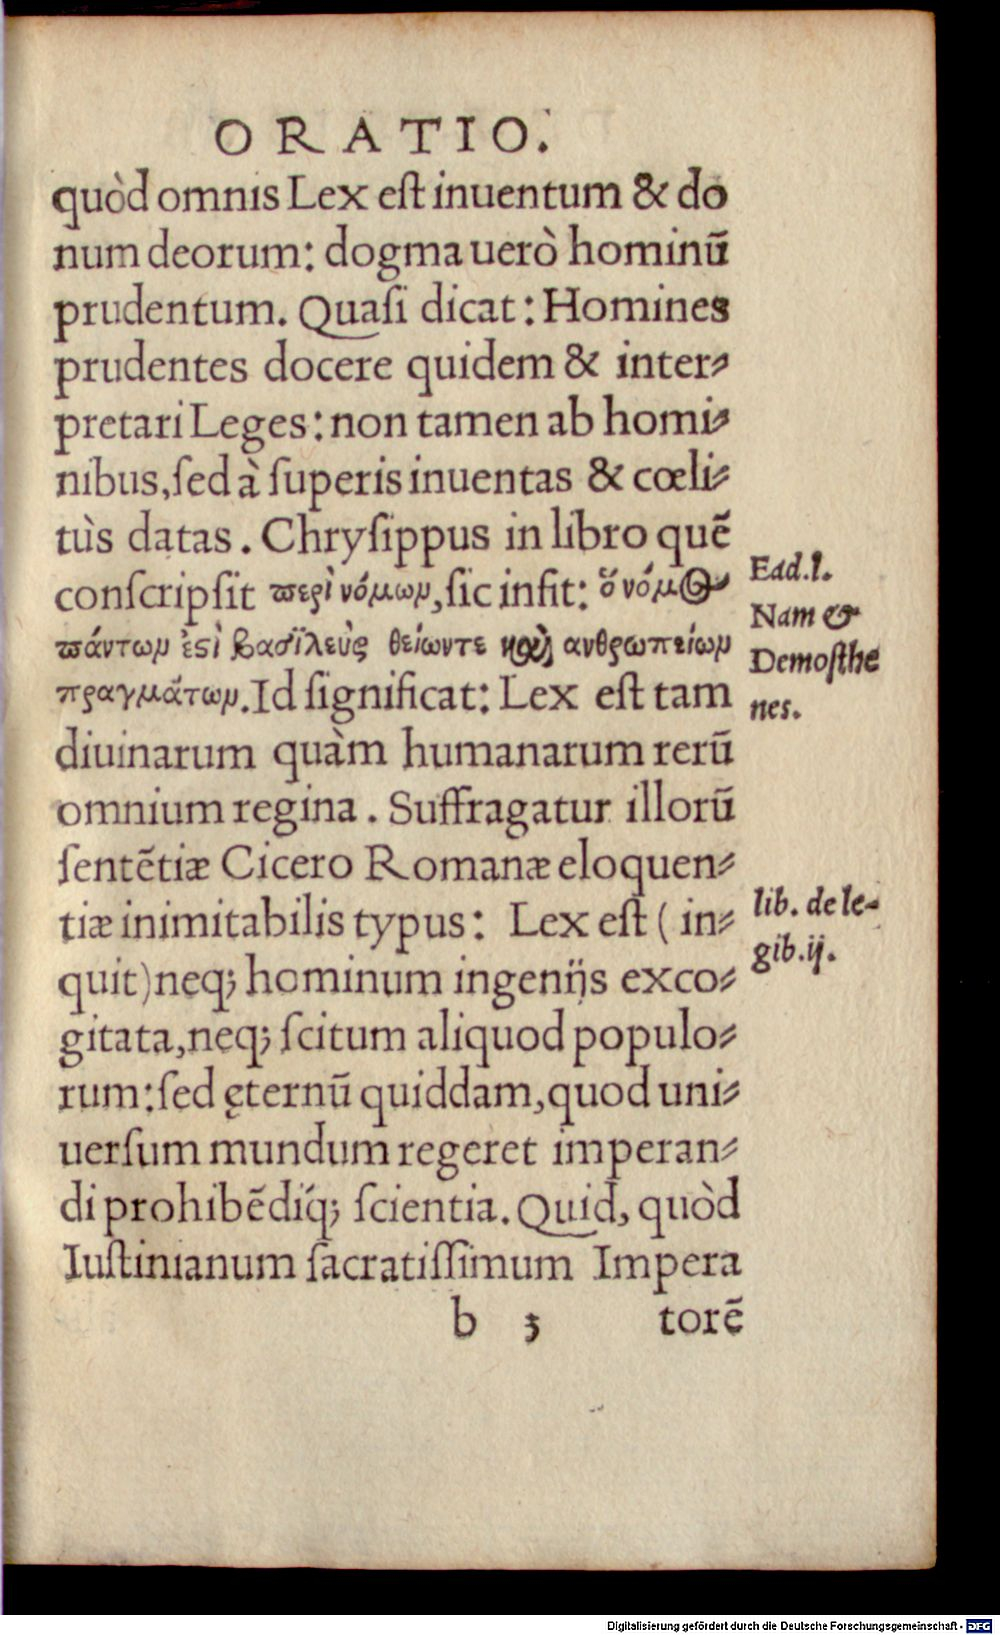 ORATIO.
quòd omnis Lex eſt inuentum & do
num deorum: dogma uerò hominū
prudentum. Quaſi dicat: Homines
prudentes docere quidem & inter⸗
pretari Leges: non tamen ab homi⸗
nibus, ſed à ſuperis inuentas & cœli⸗
tùs datas. Chryſippus in libro quē
conſcripſit περὶ νόμωμ, ſic infit: ὅ νόμος
πάντωμ ἐϛὶ βασϊλεὺς θείωντε καὶ ανθρωπείωμ
πραγμάτωμ. Id ſignificat: Lex eſt tam
diuinarum quàm humanarum rerū
omnium regina. Suffragatur illorū
ſentētiæ Cicero Romanæ eloquen⸗
tiæ inimitabilis typus: Lex eſt ( in⸗
quit) neq; hominum ingenijs exco⸗
gitata, neq; ſcitum aliquod populo⸗
rum: ſed ęternū quiddam, quod uni⸗
uerſum mundum regeret imperan⸗
di prohibēdiq́; ſcientia. Quid, quòd
Iuſtinianum ſacratiſſimum Impera
b 3 torē
Ead. l.
Nam &
Demoſthe
nes.
lib. de le⸗
gib. ij.
Digitalisierung gefördert durch die Deutsche Forschungsgemeinschaft - DFG